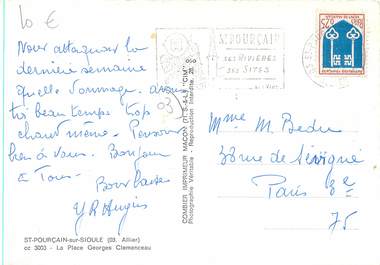 10 €
Nous attaquons la
dernière semaine
quelle dommage. avons
très beau temps trop
chaud même. Pensons
bien à vous. Bonjour
à Tous.
Bons baisers
(03)
ST-POURÇAIN-sur-SIOULE (03. Allier)
cc 3003 - La Place Georges Clemenceau
COMBIER IMPRIMEUR MACON (71. S.-&-L.) "CIM"
Photographie Véritable - Reproduction Interdite.
ST POURÇAIN
SES RIVIÈRES
SES SITES
Mme M. Bedu
33 rue de Sévigné
Paris 3e
75